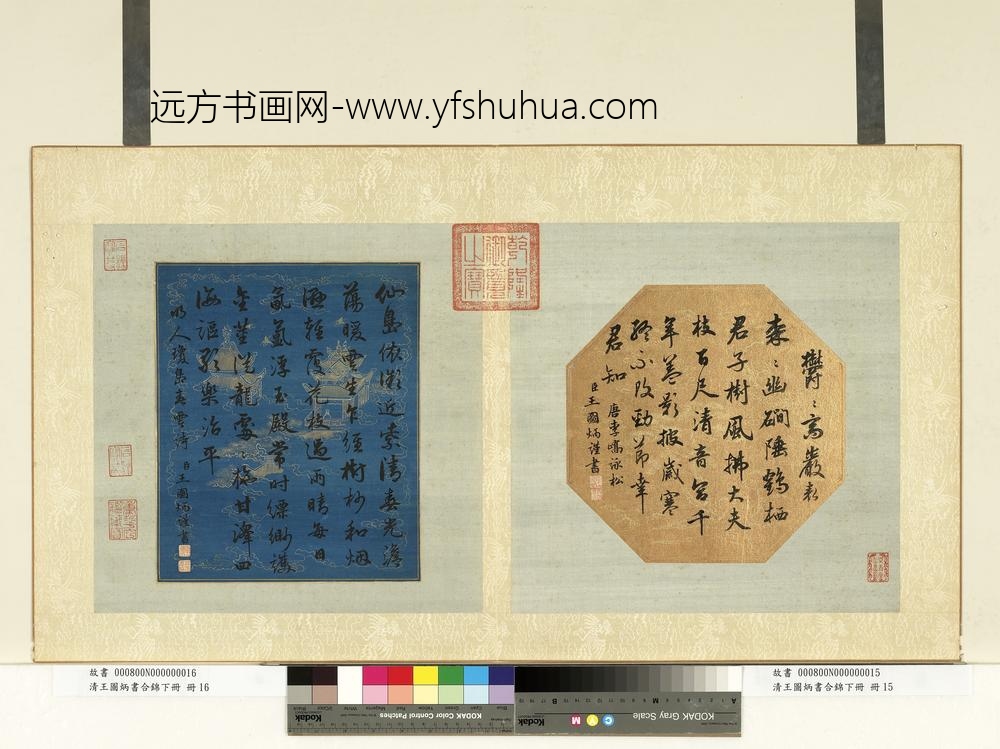 远方书画网-www.yfshuhua.com
乾隆御覽之寶
鬱〻高巖表
森〻幽磵陲鶴栖
君子樹風拂大夫
枝百尺清音合千
年蓋影披歲寒
終不改勁節幸
君知
唐李嶠詠松
臣王圖炳謹書
仙島依微近紫清春光澹
蕩暖雲生乍經樹杪和烟
濕輕覆花枝過雨晴每日
氤氲浮玉殿常時縹緲護
金莖從龍處〻施甘澤四
海謳歌樂治平
明人瓊島春雲詩
臣王圖炳謹書
故書 000800N000000016
清王圖炳書合錦下冊 冊 16
故書 000800N000000015
清王圖炳書合錦下冊 冊 15
KODAK Color Control Patches
Kodak
KODAK Gray Scale
Kodak
C Y M